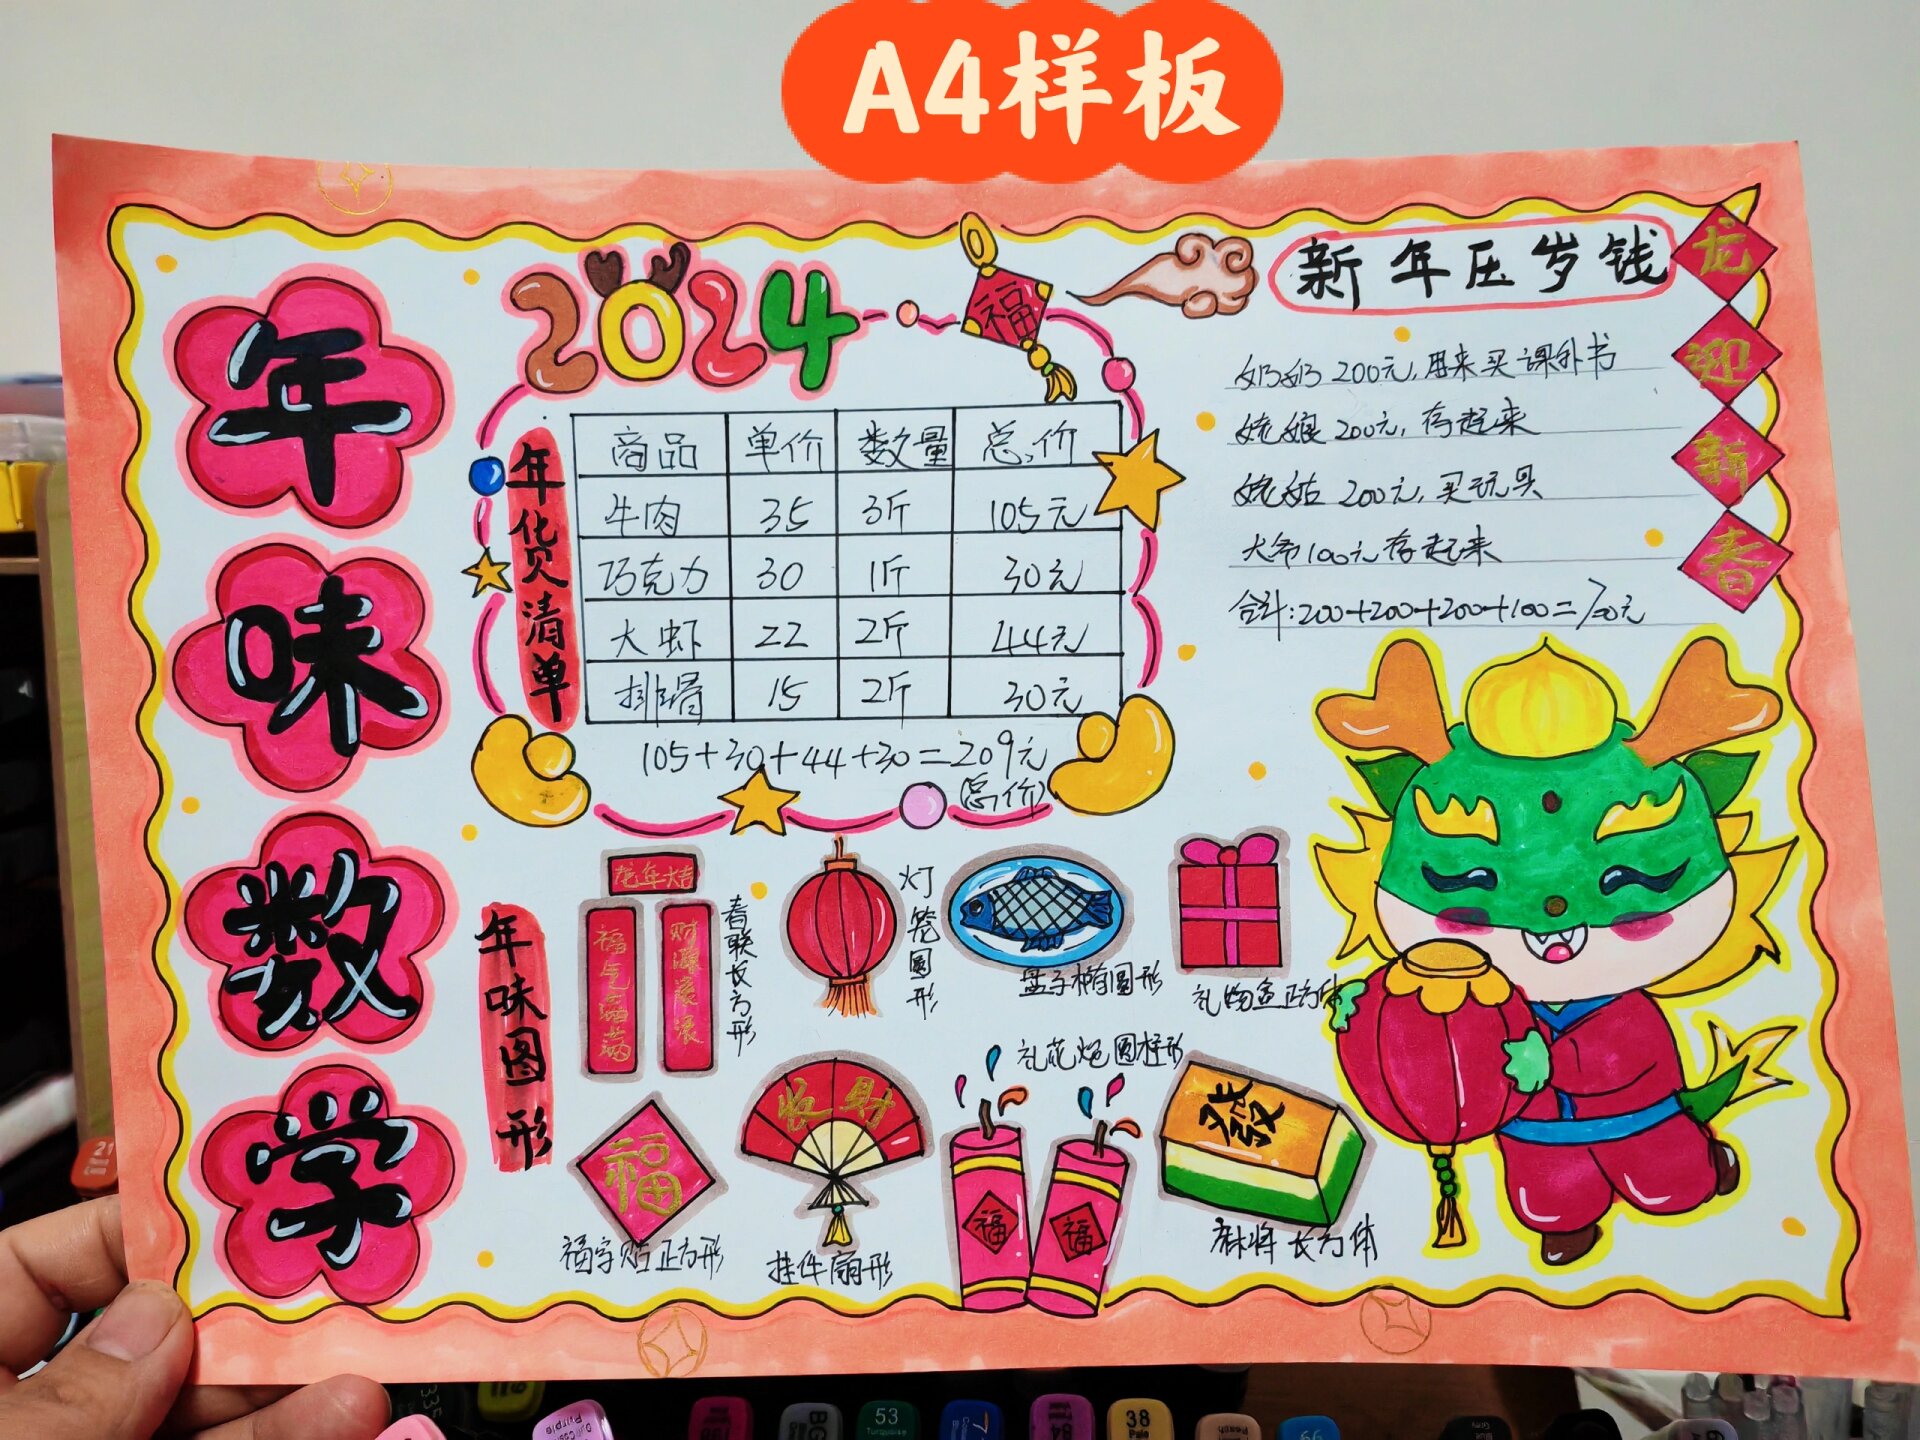 A4样板
年味数学
2024
福
新年压岁钱
龙迎新春
年货清单
商品 单价 数量 总价
牛肉 35 3斤 105元
巧克力 30 1斤 30元
大虾 22 2斤 44元
排骨 15 2斤 30元
105+30+44+30=209元
(总价)
奶奶200元,用来买课外书
姥娘200元,存起来
姥姑200元,买玩具
大爷100元存起来
合计:200+200+200+100=700元
年味图形
龙年大吉
福气满满
财源滚滚
春联长方形
灯笼圆形
盘子椭圆形
礼物盒正方体
福
福字贴正方形
收财
挂件扇形
礼花炮圆柱形
福
福
發
麻将长方体
21
53
Turquoise
38
Pale